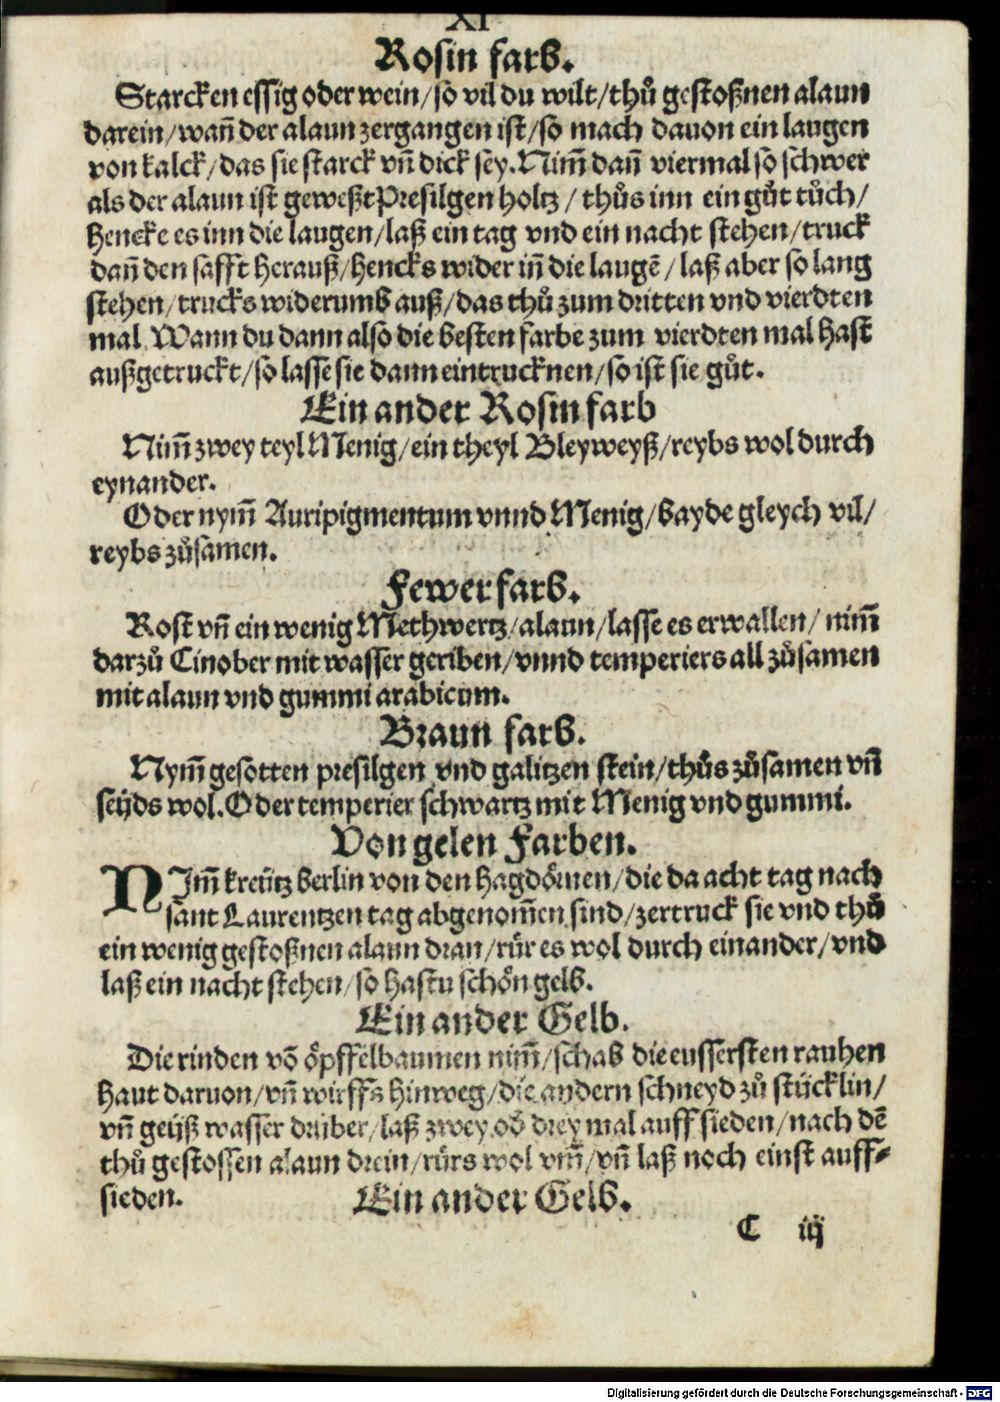 XI
Rosin farb.
Starcken essig oder wein/so vil du wilt/thuͦ gestoßnen alaun
darein/wañ der alaun zergangen ist/so mach dauon ein laugen
von kalck/das sie starck vñ dick sey. Nim̃ dañ viermal so schwer
als der alaun ist geweßt Presilgen holtz / thuͦs inn ein guͦt tuͦch/
Hencke es inn die laugen/laß ein tag vnd ein nacht stehen/truck
dañ den safft herauß/hencks wider iñ die laugẽ / laß aber so lang
stehen/trucks widerumb auß/das thuͦ zum dritten vnd vierdten
mal. Wann du dann also die besten farbe zum vierdten mal hast
außgetruckt/so lasse sie dann eintrucknen/so ist sie guͦt.
Ein ander Rosin farb
Nim̃ zwey teyl Menig/ein theyl Bleyweyß/reybs wol durch
eynander.
Oder nym̃ Auripigmentum vnnd Menig/bayde gleych vil/
reybs zuͦsamen.
Fewer farb.
Rost vñ ein wenig Methwertz/alaun/lasse es erwallen/ nim̃
darzuͦ Cinober mit wasser geriben/vnnd temperiers all zuͦsamen
mit alaun vnd gummi arabicum.
Braun farb.
Nym̃ gesotten presilgen vnd galitzen stein/thuͦs zuͦsamen vñ
seyds wol. Oder temperier schwartz mit Menig vnd gummi.
Von gelen Farben.
NIm̃ kreütz berlin von den hagdoͤrnen/die da acht tag nach
sant Laurentzen tag abgenom̃en sind/zertruck sie vnd thuͦ
ein wenig gestoßnen alaun dran/ruͤr es wol durch einander/vnd
laß ein nacht stehen/so hastu schoͤn gelb.
Ein ander Gelb.
Die rinden võ oͤpffelbaumen nim̃/schab die eussersten rauhen
haut daruon/vñ wirffs hinweg/die andern schneyd zuͦ stücklin/
vñ geyß wasser druber/laß zwey od̕ drey mal auff sieden/nach dẽ
thuͦ gestossen alaun drein/ruͤrs wol vm̃/vñ laß noch einst auff⸗
sieden. Ein ander Gelb.
C iij
Digitalisierung gefördert durch die Deutsche Forschungsgemeinschaft - DFG